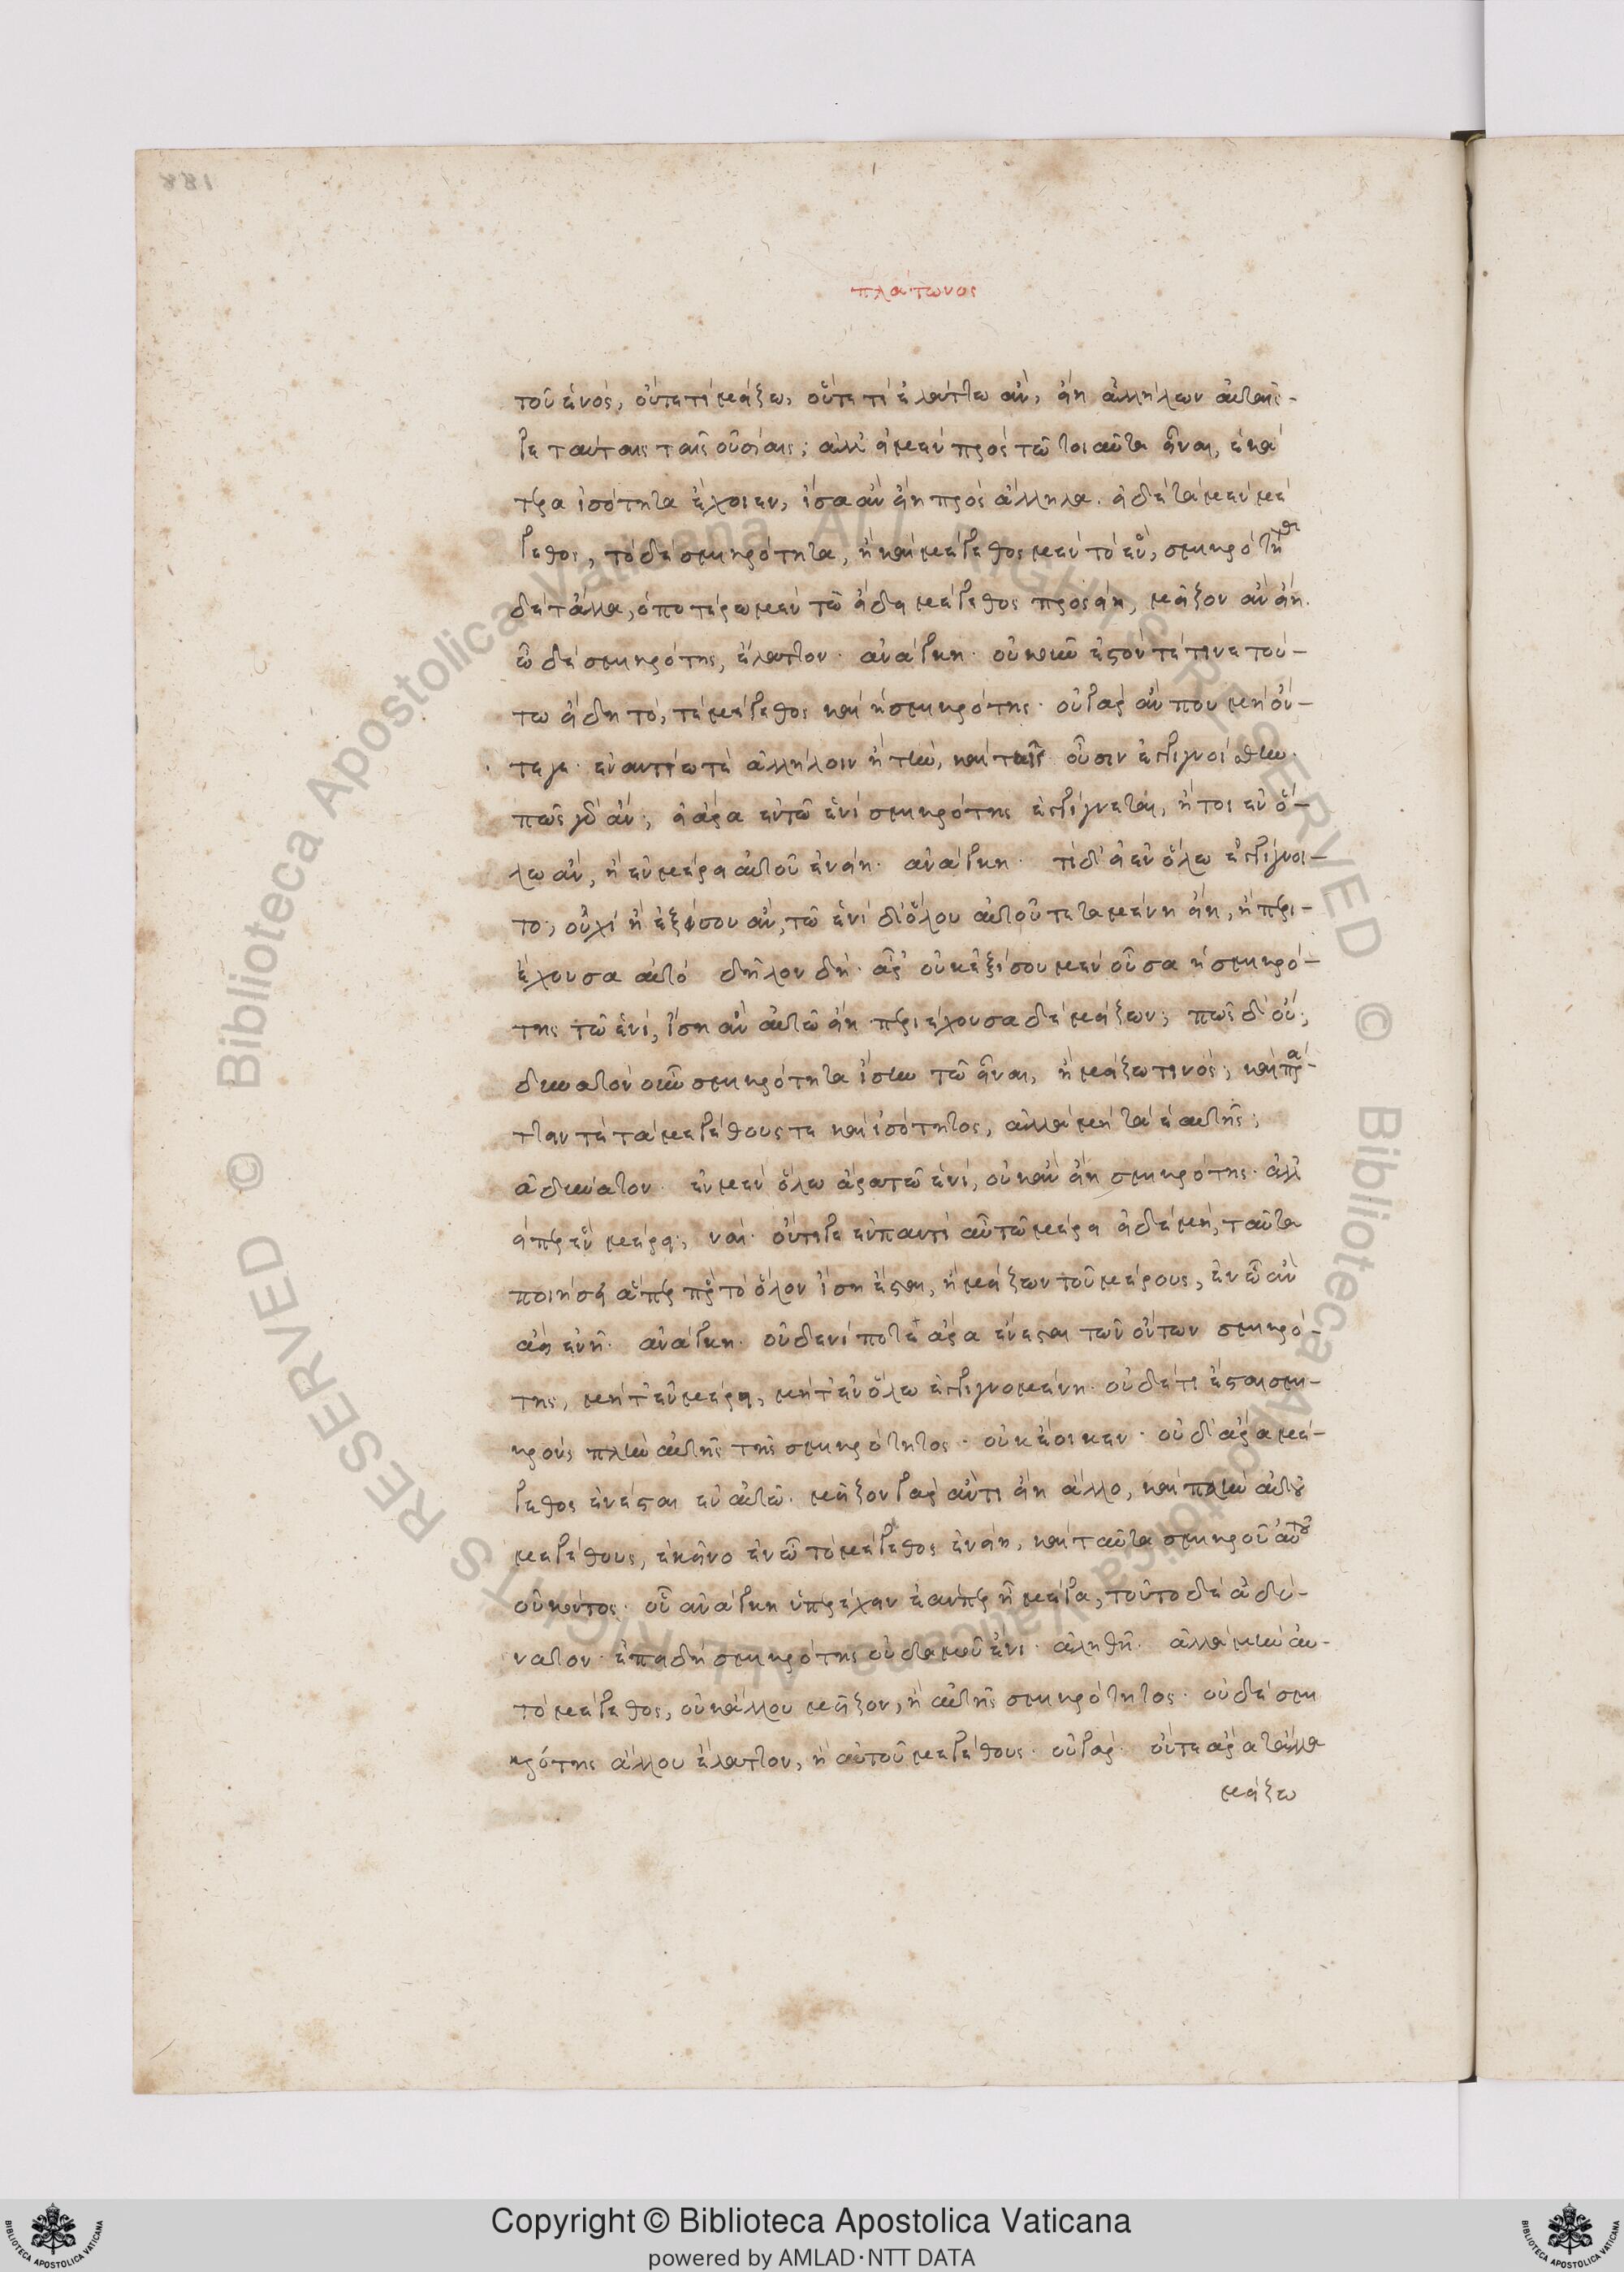 188
πλάτωνος
τοῦ ἑνός, οὔτε τι μείζω, οὔτε τι ἐλάττω ἂν, εἴη ἀλλήλων αὐταῖς-
γε ταύταις ταῖς οὐσίαις; ἀλλ' εἰ μὲν πρὸς τῶ τοιαῦτα εἶναι, ἑκά
τερα ἰσότητα ἔχοιεν, ἴσα ἂν εἴη πρὸς ἄλληλα. εἰ δὲ τὰ μὲν μέ
γεθος, τὸ δὲ σμικρότητα, ἢ καὶ μέγεθος μὲν τὸ ἓν, σμικρότητα
δὲ τἄλλα, ὁποτέρω μὲν τῶ εἴδει μέγεθος προσείη, μεῖζον ἂν εἴη.
ὧ δὲ σμικρότης, ἔλαττον. ἀνάγκη. οὐκοῦν ἐστόν τέ τινε τού-
τω εἴδη τό, τε μέγεθος καὶ ἡ σμικρότης. οὐ γὰρ ἄν που μὴ ὄν-
τε γε. ἐναντίω τὲ ἀλλήλοιν ἤτην, καὶ τοῖς οὖσιν ἐγγιγνοίσθην.
πῶς γὰρ ἄν; εἰ ἄρα ἐν τῶ ἑνὶ σμικρότης ἐγγίγνεται, ἤτοι ἐν ὅ-
λω ἂν, ἢ ἐν μέρει αὐτοῦ ἐνείη. ἀνάγκη. τί δ' εἰ ἐν ὅλω ἐγγίγνοι-
το; οὐχὶ ἢ ἐξίσου ἂν, τῶ ἑνὶ δι' ὅλου αὐτοῦ τεταμένη εἴη, ἢ περι-
έχουσα αὐτό δῆλον δή. ἆρ' οὐκ ἐξίσου μὲν οὖσα ἡ σμικρό-
της τῶ ἑνί, ἴση ἂν αὐτῶ εἴη περιέχουσα δὲ μείζων; πῶς δ' οὔ;
δυνατὸν οὖν σμικρότητα ἴσην τῶ εἶναι, ἢ μείζω τινός; καὶ πρά-
ττειν τὲ τὰ μεγέθους τε καὶ ἰσότητος, ἀλλὰ μὴ τὰ ἑαυτῆς;
ἀδύνατον. ἐν μὲν ὅλω ἄρα τῶ ἑνί, οὐκ ἂν εἴη σμικρότης. ἀλλ'
εἴπερ ἐν μέρει; ναί. οὔτε γε ἐν παντὶ αὖ τῶ μέρει εἰ δὲ μή, ταῦτα
ποιήσει ἅπερ πρὸς τὸ ὅλον ἴση ἔσται, ἢ μείζων τοῦ μέρους, ἐν ὧ ἂν
ἀεὶ ἐνῆ. ἀνάγκη. οὐδενί ποτε ἄρα ἐνέσται τῶν ὄντων σμικρό-
της, μήτ' ἐν μέρει, μήτ' ἐν ὅλω ἐγγιγνομένη. οὐδέ τι ἔσται σμι-
κρόν, πλὴν αὐτῆς τῆς σμικρότητος. οὐκ ἔοικεν. οὐδ' ἄρα μέ-
γεθος ἐνέσται ἐν αὐτῶ. μεῖζον γὰρ ἄν τι εἴη ἄλλο, καὶ πλὴν αὐτοῦ
μεγέθους, ἐκεῖνο ἐν ὧ τὸ μέγεθος ἐνείη, καὶ ταῦτα σμικροῦ αὐτοῦ
οὐκ ὄντος. οὗ ἀνάγκη ὑπερέχειν ἐάνπερ ἦ μέγα, τοῦτο δὲ ἀδύ-
νατον. ἐπειδὴ σμικρότης οὐδαμοῦ ἔνι. ἀληθῆ. ἀλλὰ μὴν αὐ-
τὸ μέγεθος, οὐκ ἄλλου μεῖζον, ἢ αὐτῆς σμικρότητος. οὐδὲ σμι
κρότης ἄλλου ἔλαττον, ἢ αὐτοῦ μεγέθους. οὐ γάρ. οὔτε ἄρα τἄλλα
μείζω
Copyright © Biblioteca Apostolica Vaticana
powered by AMLAD·NTT DATA